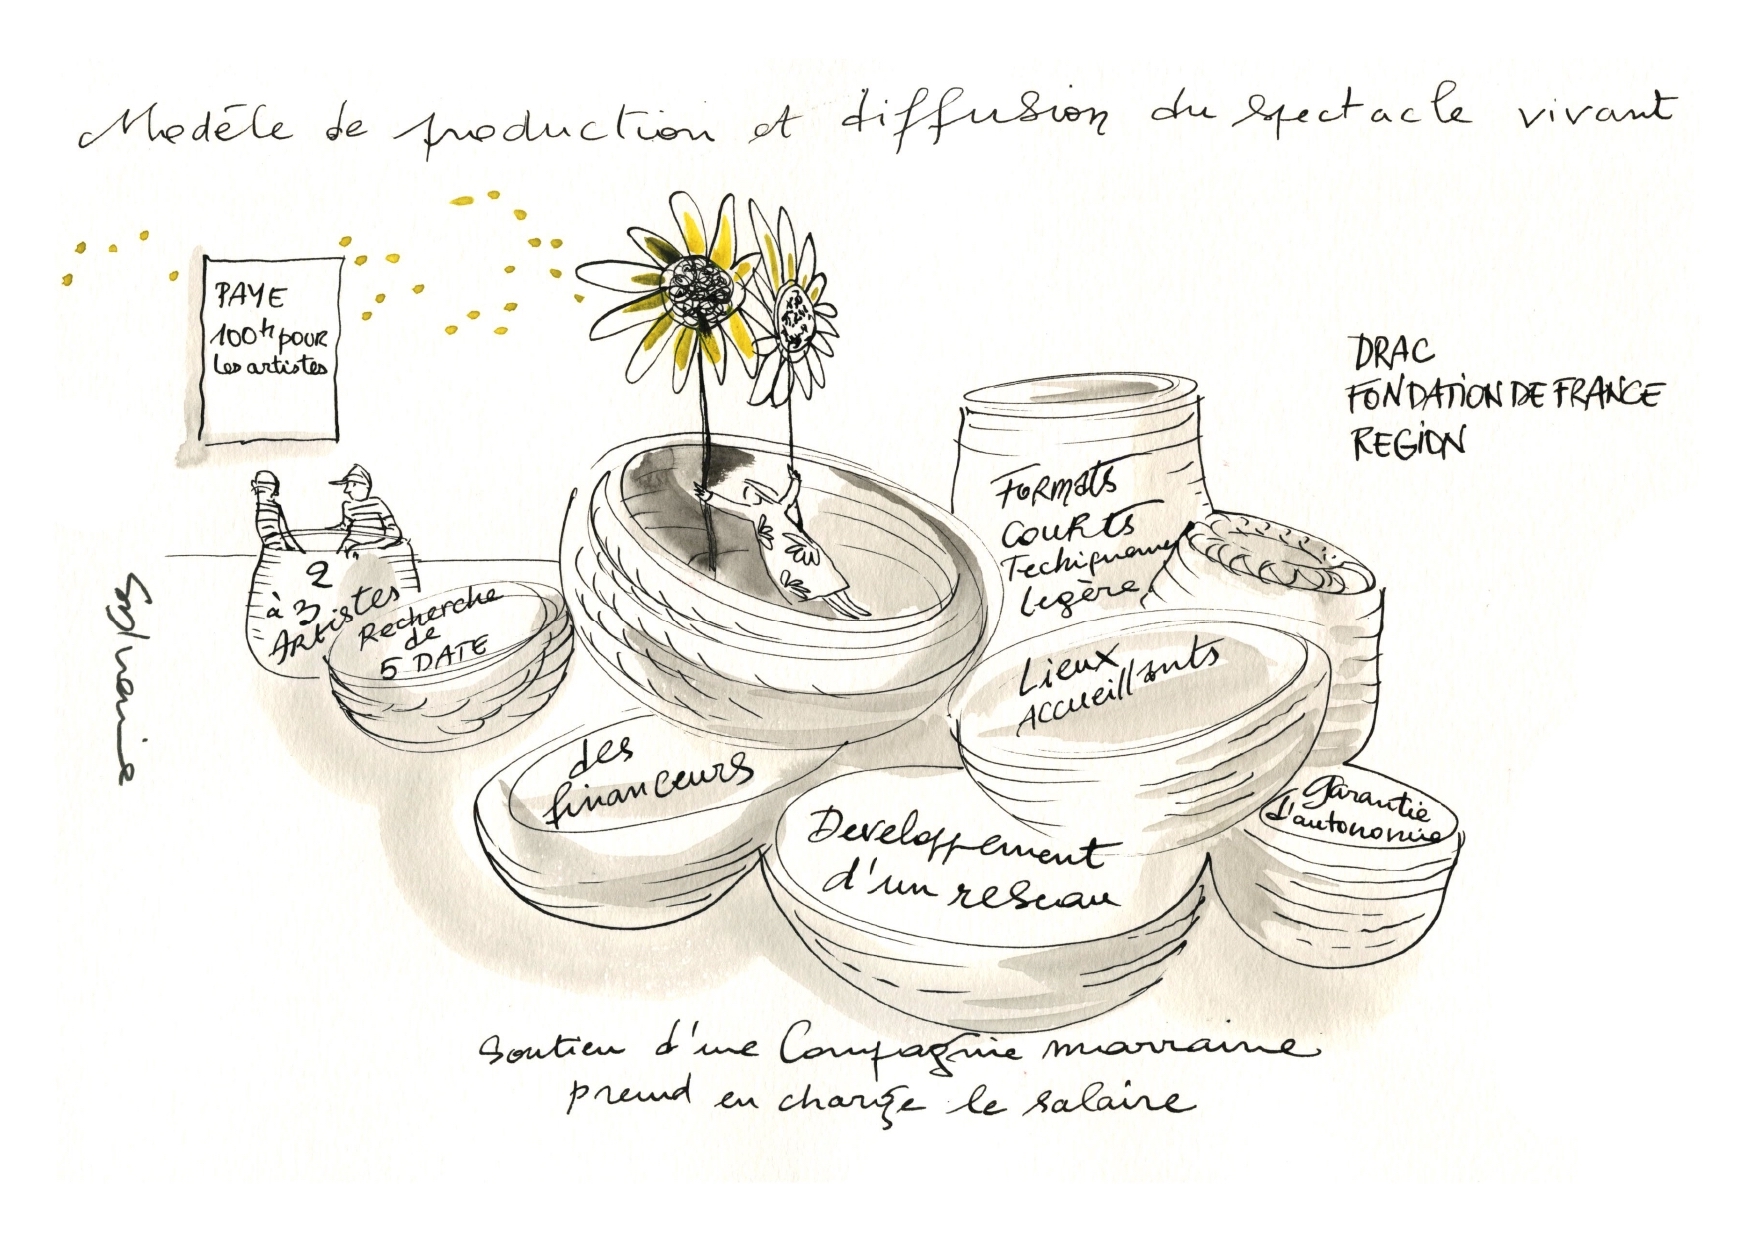 Modèle de production et diffusion du spectacle vivant
PAYE
100h pour
les artistes
DRAC
FONDATION DE FRANCE
REGION
2
à 3
Artistes
Recherche
de
5 DATE
Formats
courts
Techiquement
légère
Lieux
Accueillants
des
financeurs
Developpement
d'un reseau
garantie
d'autonomie
Soutien d'une Compagnie marraine
prend en charge le salaire
Sylvaine